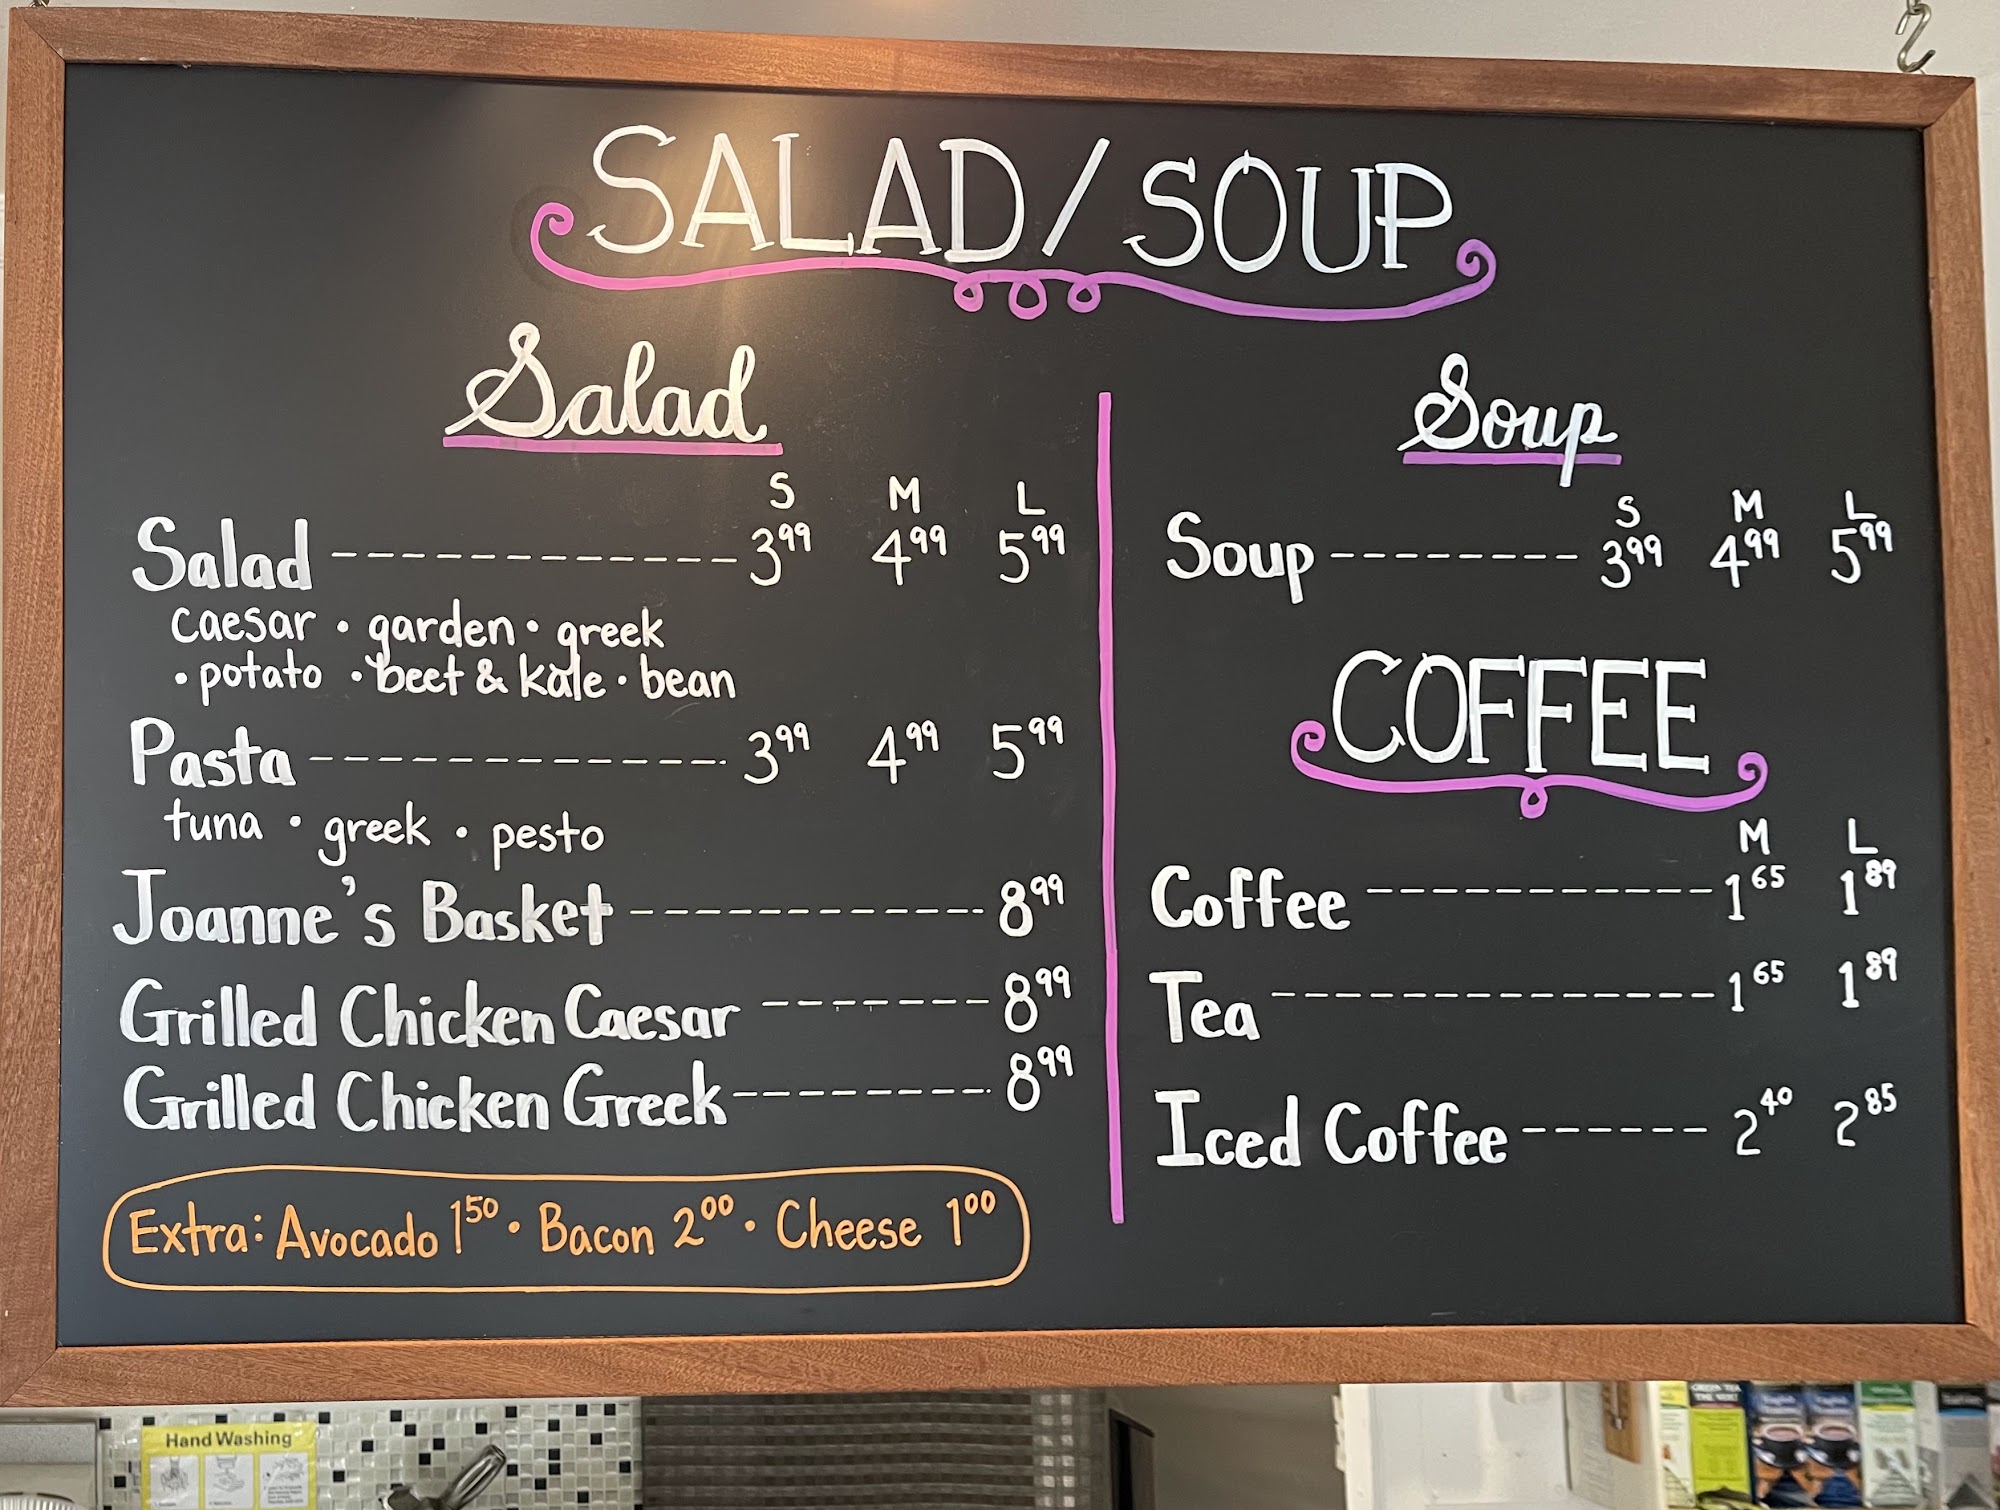 SALAD/SOUP
Salad
S M L
Salad 3.99 4.99 5.99
caesar • garden • greek
• potato • beet & kale • bean
Pasta 3.99 4.99 5.99
tuna • greek • pesto
Joanne's Basket 8.99
Grilled Chicken Caesar 8.99
Grilled Chicken Greek 8.99
Extra: Avocado 1.50 • Bacon 2.00 • Cheese 1.00
Soup
S M L
Soup 3.99 4.99 5.99
COFFEE
M L
Coffee 1.65 1.89
Tea 1.65 1.89
Iced Coffee 2.40 2.85
Hand Washing